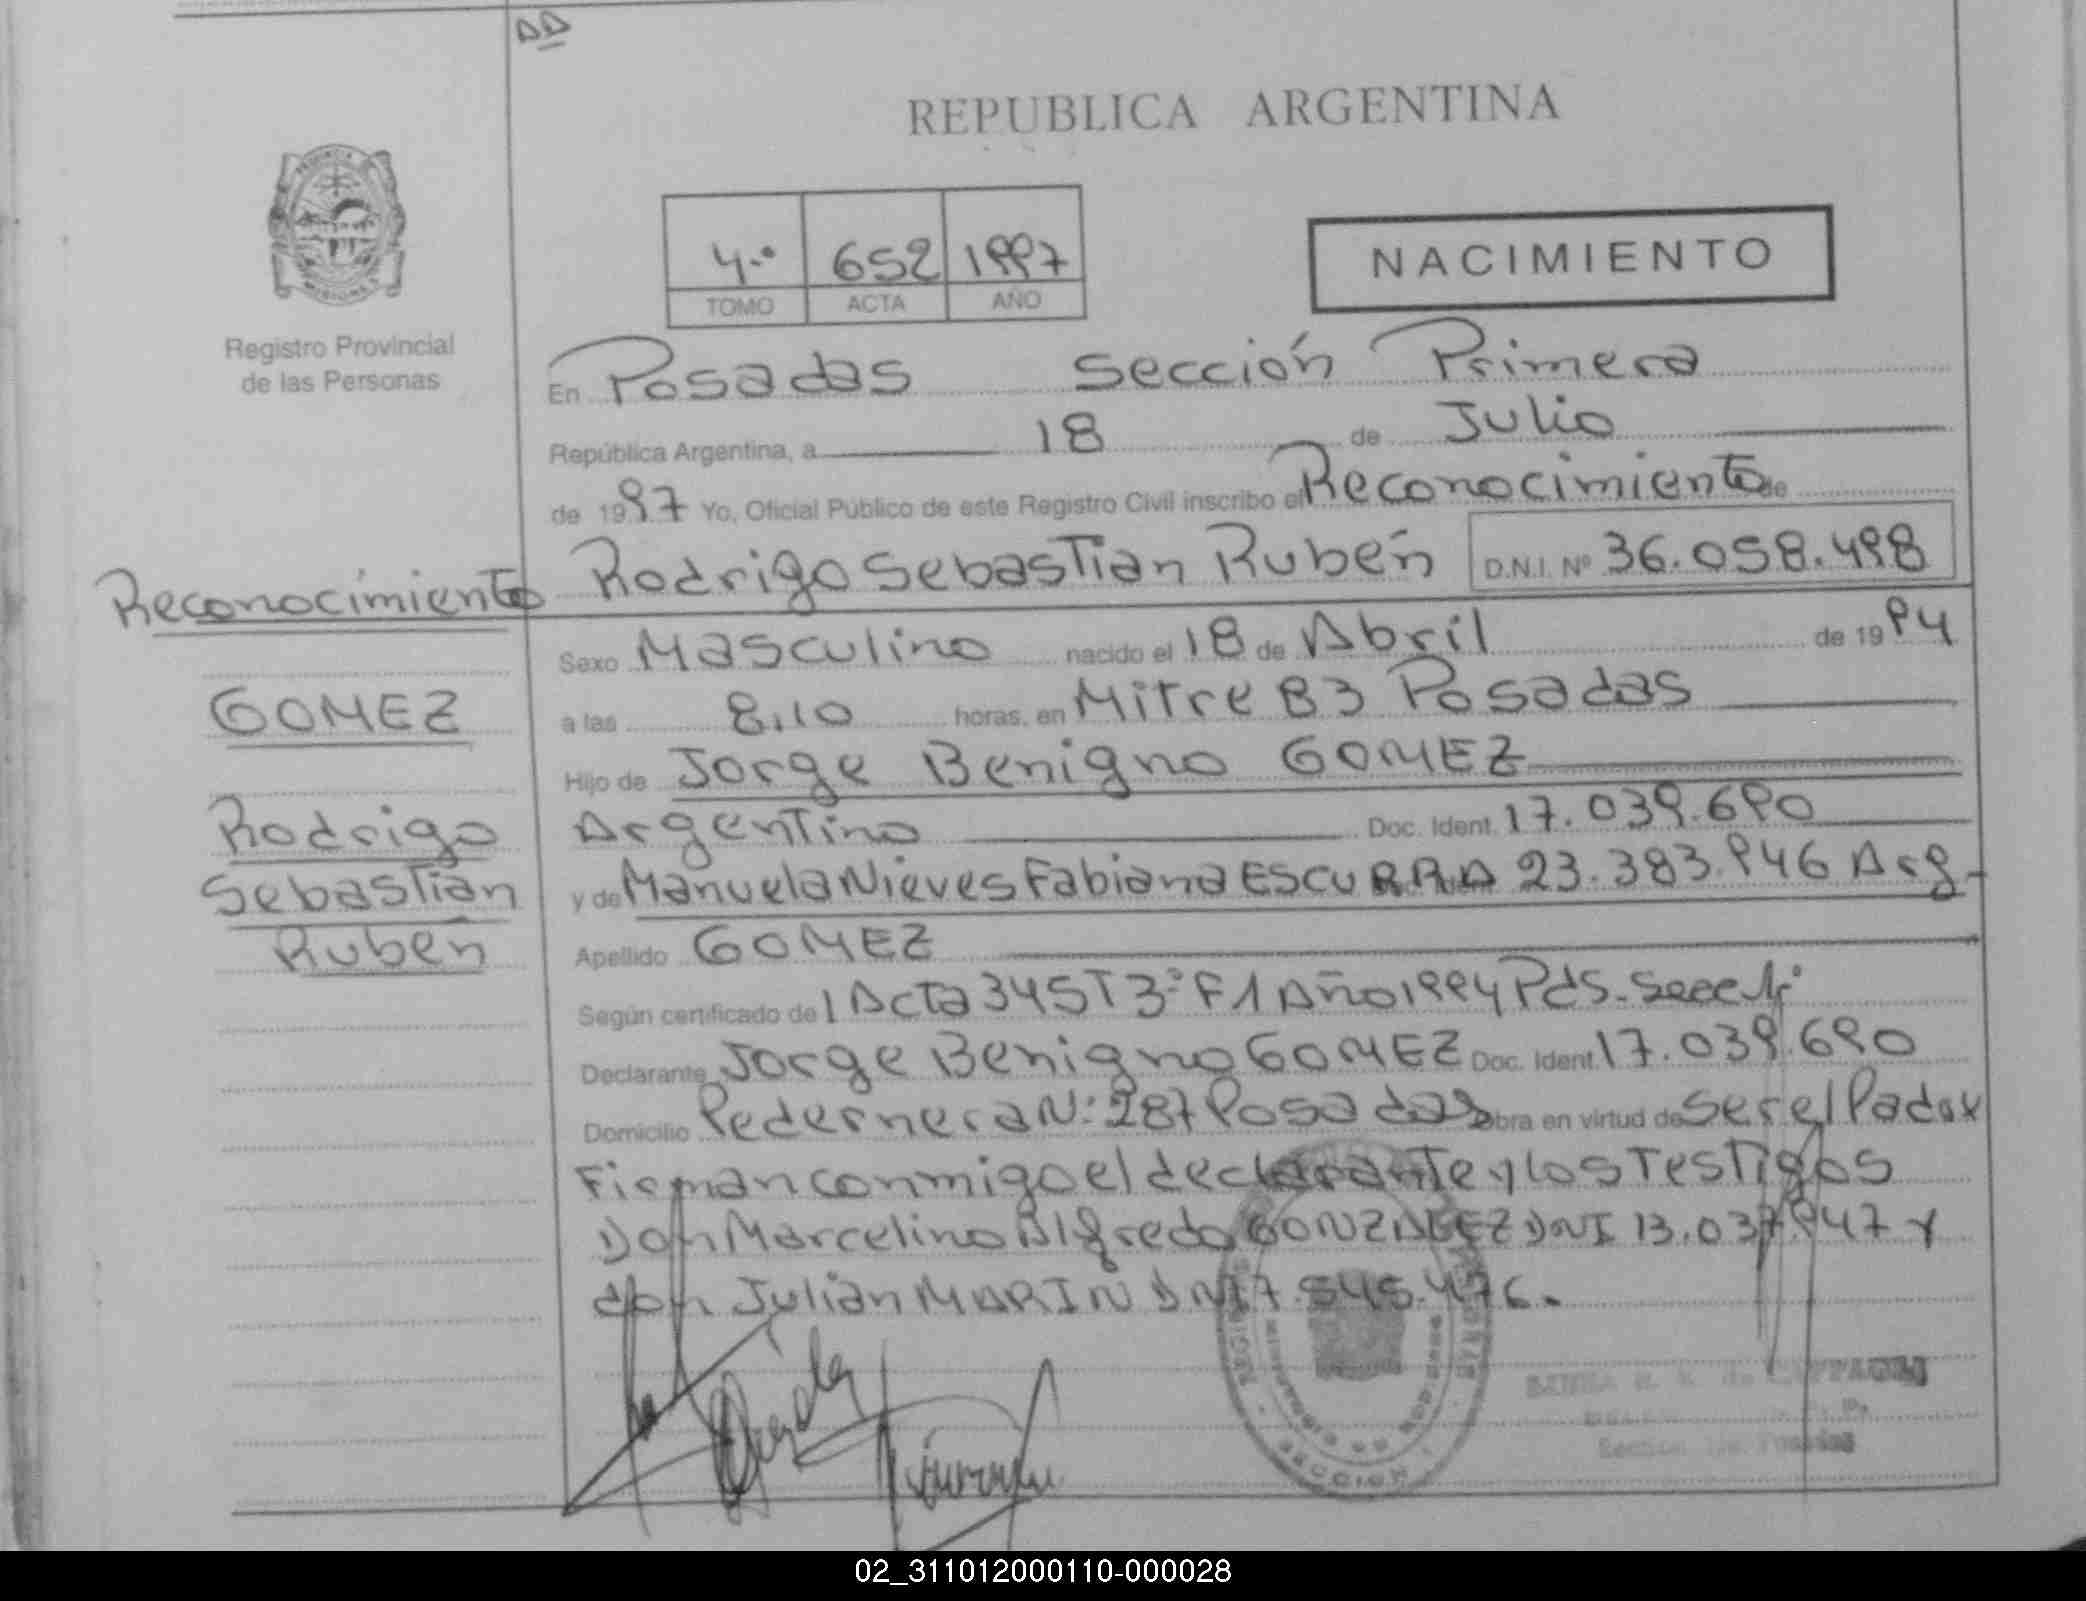 DD
REPUBLICA ARGENTINA
PROVINCIA DE MISIONES
4.º 652 1997
TOMO ACTA AÑO
NACIMIENTO
Registro Provincial
de las Personas
En Posadas Sección Primera
República Argentina, a 18 de Julio
de 1997 Yo, Oficial Público de este Registro Civil inscribo el Reconocimiento de
Rodrigo Sebastián Rubén D.N.I. Nº 36.058.498
Reconocimiento
Sexo Masculino nacido el 18 de Abril de 1994
GOMEZ
a las 8.10 horas, en Mitre 83 Posadas
Hijo de Jorge Benigno GOMEZ
Rodrigo
Argentino Doc. Ident. 17.039.690
Sebastián
y de Manuela Nieves Fabiana ESCURRA 23.383.946 Arg.
Rubén
Apellido GOMEZ
Según certificado de 1 Acta 345 T 3º F 1 Año 1994 Pds. Secc.
Declarante Jorge Benigno GOMEZ Doc. Ident. 17.039.690
Domicilio Pedernera N: 287 Posadas Obra en virtud de Ser el Padre
Firman conmigo el declarante y los Testigos
Don Marcelino Alfredo GONZALEZ DNI 13.037.947 y
don Julián MARIN DNI 7.545.476.
SECCION
02_311012000110-000028